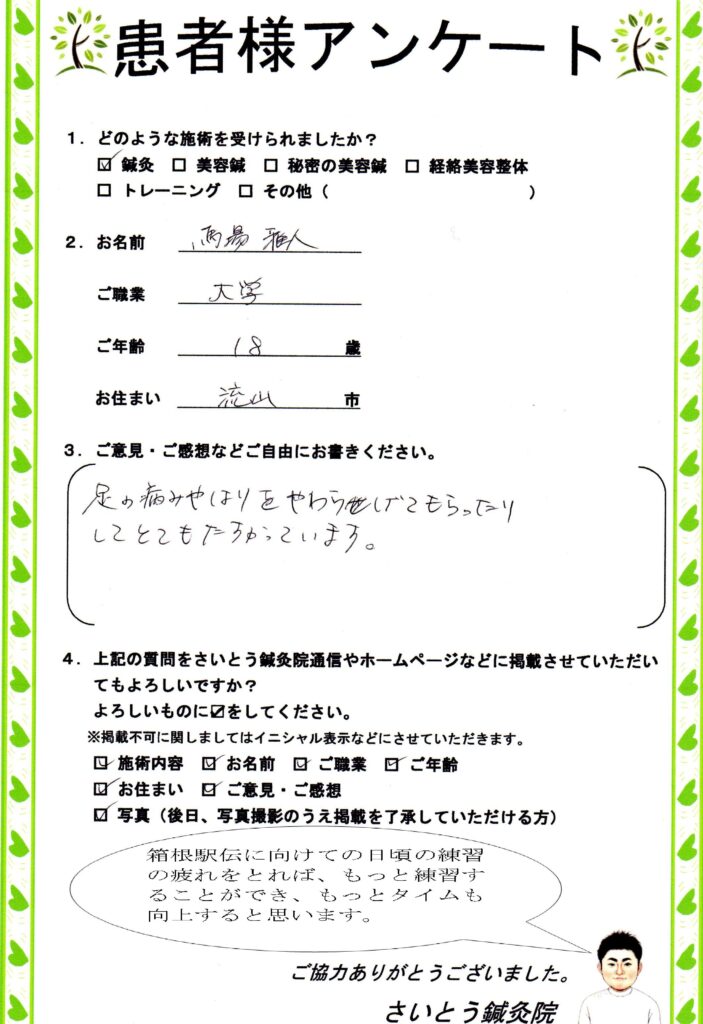 患者様アンケート
1．どのような施術を受けられましたか？
☑ 鍼灸 □ 美容鍼 □ 秘密の美容鍼 □ 経絡美容整体
□ トレーニング □ その他（ ）
2．お名前 馬場 雅人
ご職業 大学
ご年齢 18 歳
お住まい 流山 市
3．ご意見・ご感想などご自由にお書きください。
足の痛みやはりをやわらげてもらったり
してとてもたすかっています。
4．上記の質問をさいとう鍼灸院通信やホームページなどに掲載させていただい
てもよろしいですか？
よろしいものに☑をしてください。
※掲載不可に関しましてはイニシャル表示などにさせていただきます。
☑ 施術内容 ☑ お名前 ☑ ご職業 ☑ ご年齢
☑ お住まい ☑ ご意見・ご感想
☑ 写真（後日、写真撮影のうえ掲載を了承していただける方）
箱根駅伝に向けての日頃の練習
の疲れをとれば、もっと練習す
ることができ、もっとタイムも
向上すると思います。
ご協力ありがとうございました。
さいとう鍼灸院